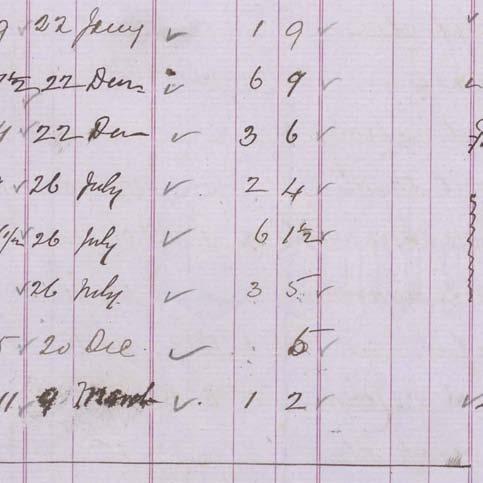 9 22 Jany ✓ 1 9 ✓
1/2 22 Dec ✓ 6 9 ✓
4 22 Dec ✓ 3 6 ✓
✓ 26 July ✓ 2 4 ✓
1/2 ✓ 26 July ✓ 6 1 1/2 ✓
✓ 26 July ✓ 3 5 ✓
5 ✓ 20 Dec ✓ 6 ✓
11 ✓ 9 March ✓ 1 2 ✓